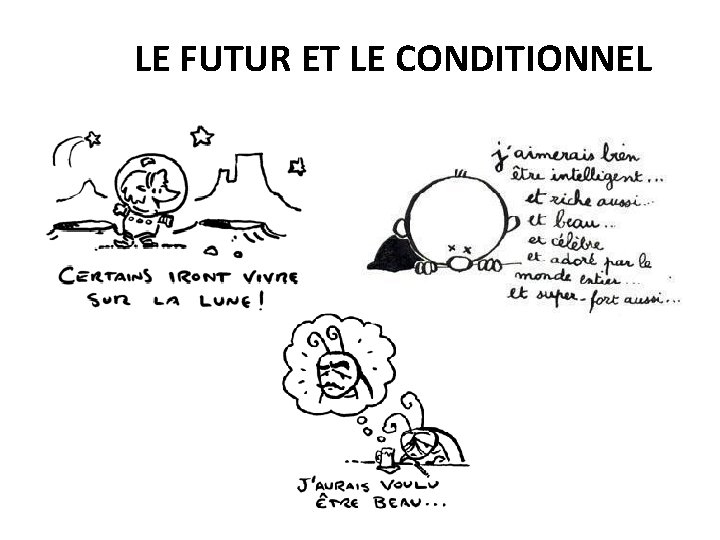 LE FUTUR ET LE CONDITIONNEL
CERTAINS IRONT VIVRE
SUR LA LUNE!
j'aimerais bien
être intelligent...
et riche aussi...
et beau...
et célèbre
et adoré par le
monde entier...
et super-fort aussi...
J'AURAIS VOULU
ÊTRE BEAU...